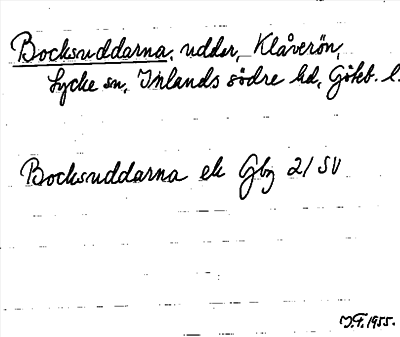 Bocksuddarna, uddar, Klåverön,
Lycke sn, Inlands södre hd, Göteb. l.
Bocksuddarna ek Gbg 21 SV
J.F. 1955.